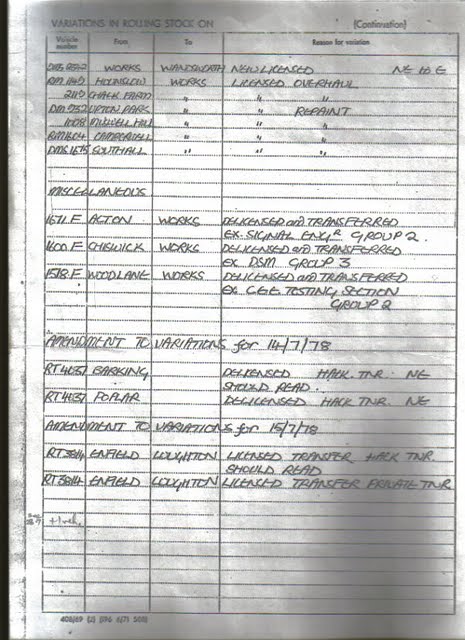 VARIATIONS IN ROLLING STOCK ON (Continuation)
Vehicle number From To Reason for variation
WORKS WANDSWORTH NEW LICENSED NE to E
RM 1140 HOUNSLOW WORKS LICENSED OVERHAUL
2110 CHALK FARM " " "
DM 932 UPTON PARK " " REPAINT
1008 MUSWELL HILL " " "
RM 1604 CAMBERWELL " " "
DMS 1675 SOUTHALL " "
MISCELLANEOUS
1671.F ACTON WORKS DELICENSED and TRANSFERRED
EX. SIGNAL ENG'R GROUP 2.
1600.F CHISWICK WORKS DELICENSED and TRANSFERRED
EX DSM GROUP 3
1518.F WOOD LANE WORKS DELICENSED and TRANSFERRED
EX. CEE TESTING SECTION
GROUP 2
AMENDMENT TO VARIATIONS for 14/7/78
BARKING DELICENSED HACK TNR. NE
SHOULD READ.
POPLAR DELICENSED HACK TNR. NE
AMENDMENT TO VARIATIONS for 15/7/78
RT 3814 ENFIELD LOUGHTON LICENSED TRANSFER HACK TNR
SHOULD READ
RT 3814 ENFIELD LOUGHTON LICENSED TRANSFER PRIVATE TNR